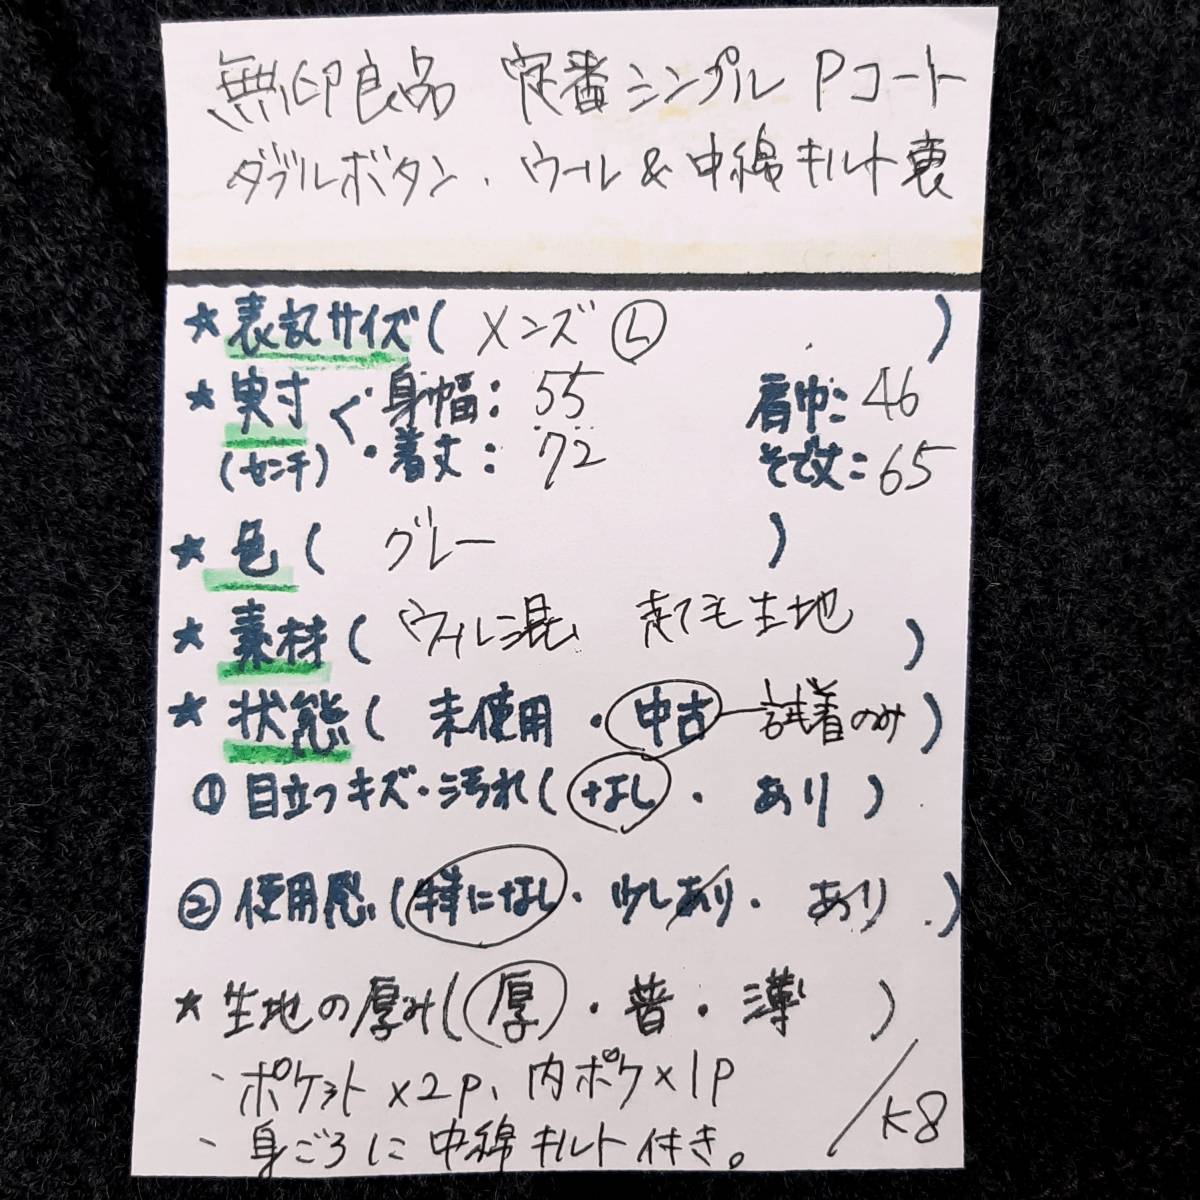 無印良品 定番シンプル Pコート
ダブルボタン、ウール&中綿キルト裏
★表記サイズ( メンズ Ⓛ )
★実寸 く ・身幅: 55 肩巾: 46
(センチ) ・着丈: 72 そで丈: 65
★色( グレー )
★素材( ウール混 生地 )
★状態( 未使用 ・ 中古 ー試着のみ )
① 目立つキズ・汚れ( なし ・ あり )
② 使用感( 特になし ・ 少しあり ・ あり )
★生地の厚み( 厚 ・ 普 ・ 薄 )
、ポケット×2p、内ポケ×1p
、身ごろに中綿キルト付き。
/K8